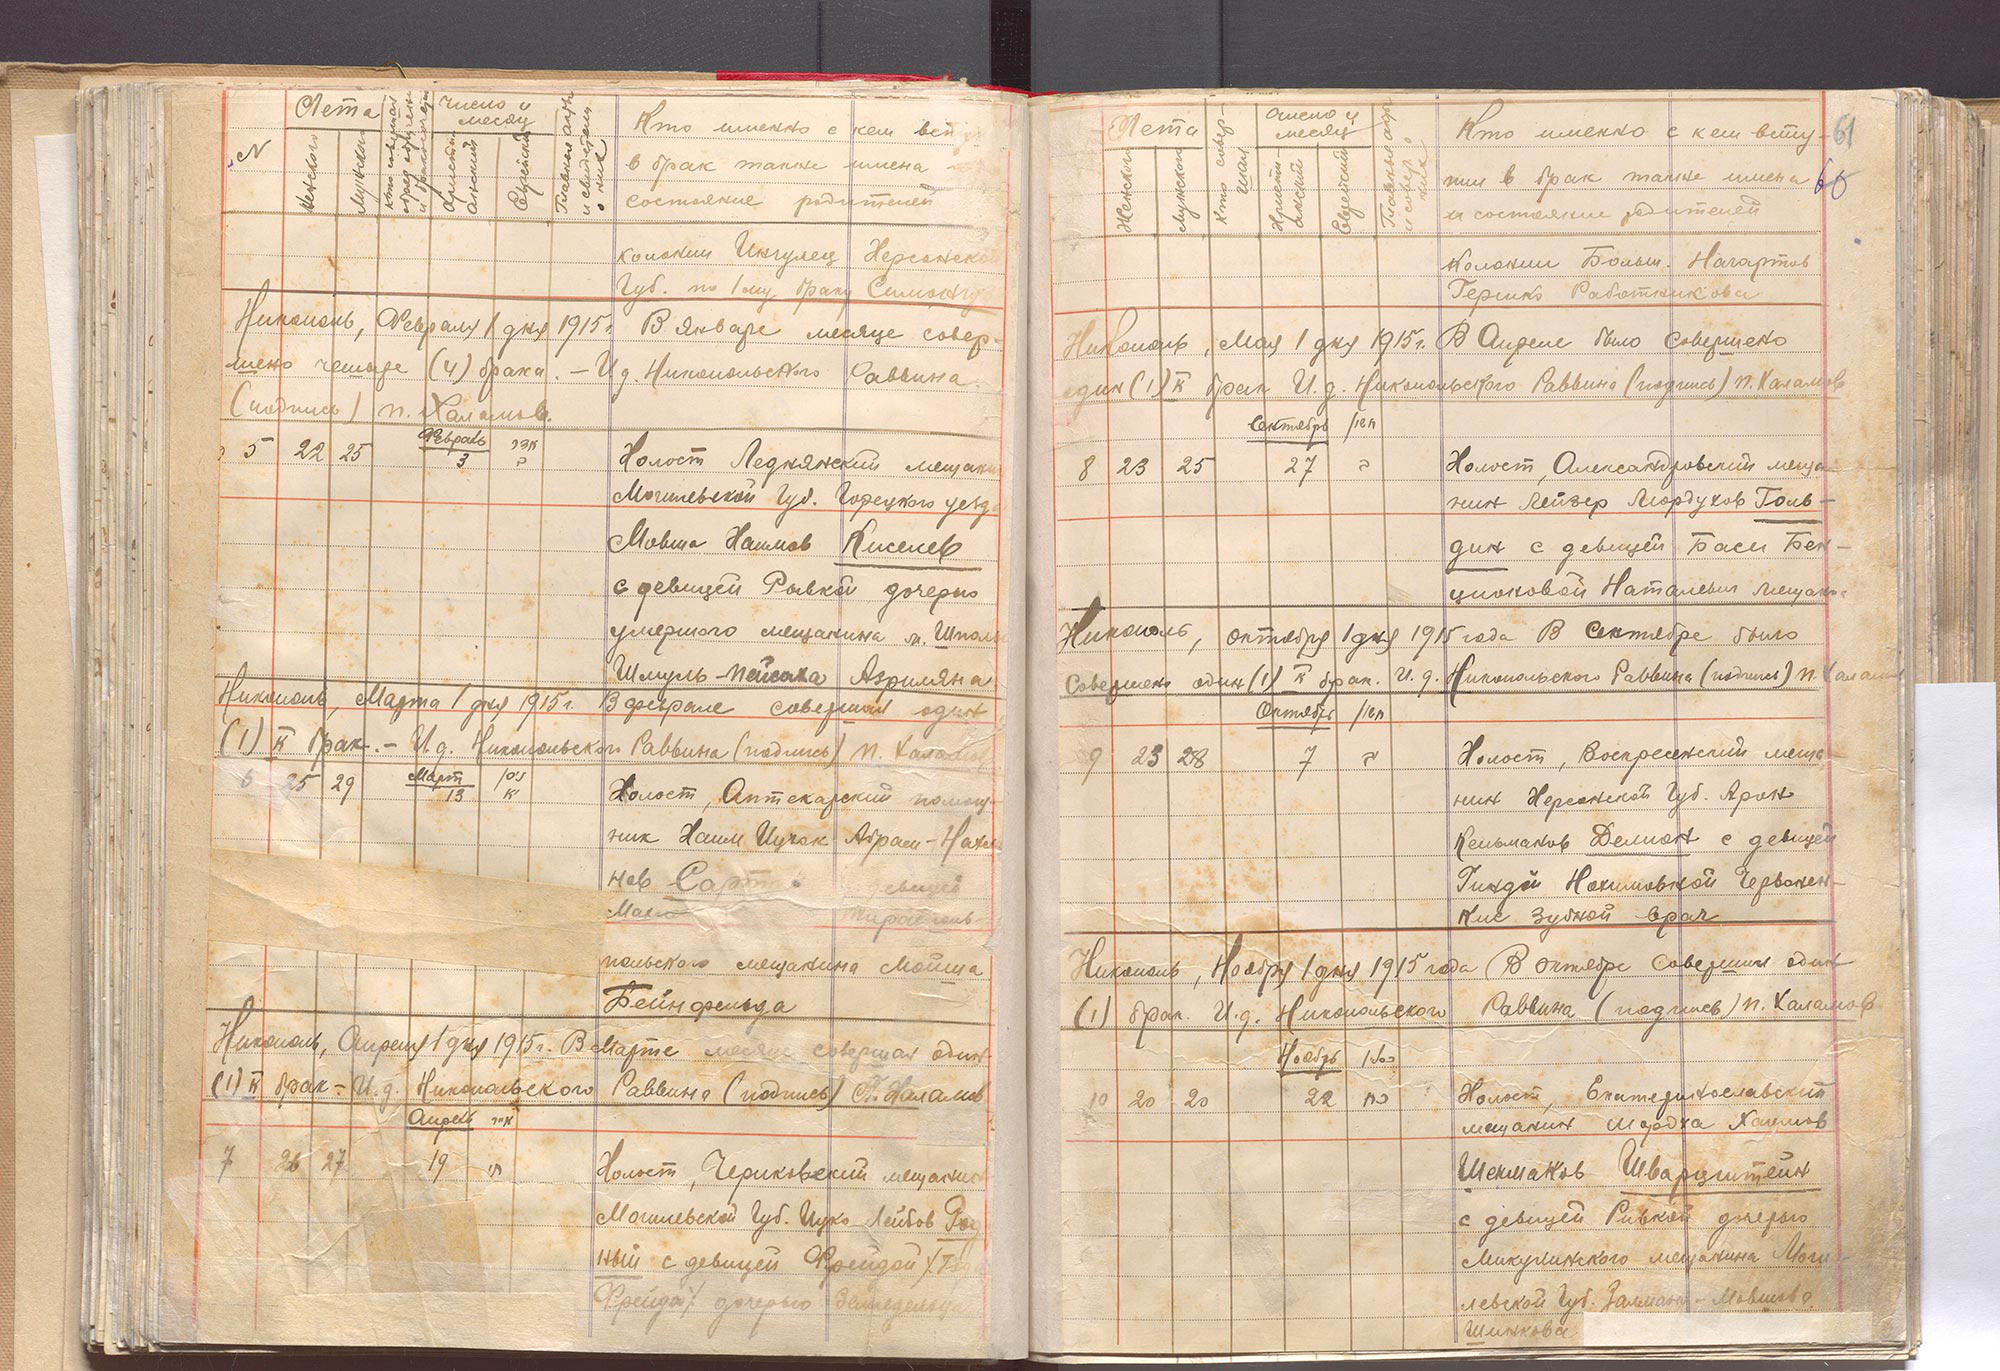 N
Лета
Женского
Мужского
Число и
месяц
Христи-
анский
Еврейский
Кто именно с кем всту
в брак также имена
состояние родителей
колонии Ингулец Херсонской
Губ. по 1му браку
Никополь, Февраля 1 дня 1915 г. В январе месяце совер-
шено четыре (4) брака. – И.д. Никопольского Раввина
(подпись) П. Халамов.
Февраль
5 22 25 3
Холост Леднянский мещанин
Могилевской Губ. Горецкого уезда
Мовша Хаимов Киселев
с девицей Рывкой дочерью
умершого мещанина м. Шполы
Шмуль-Пейсаха Азримяна
Никополь, Марта 1 дня 1915 г. В феврале совершен один
(1) й брак. – И.д. Никопольского Раввина (подпись) П. Халамов
Март
6 25 29 13
Холост, Аптекарский помощ-
ник Хаим Ицхок Абрам-
нов девицей
польского мещанина Мойша
Бейнфельда
Никополь, Апреля 1 дня 1915 г. В Марте месяце совершен один
(1) й брак – И.д. Никопольского Раввина (подпись) П. Халамов
Апрель
7 26 27 19
Холост, Чериковский мещанин
Могилевской Губ. Ицко Лейбов
ный с девицей Фрейдой
Фрейда/ дочерью Земледельца
61
60
Лета
Женского
Мужского
Кто совер-
шал
Число и
месяц
Христи-
анский
Еврейский
Кто именно с кем всту-
пил в брак также имена
и состояние родителей
колонии Больш. Нагартов
Гершко Работникова
Никополь, Мая 1 дня 1915 г. В Апреле было совершено
один (1) й брак И.д. Никопольского Раввина (подпись) П. Халамов
Сентябрь
8 23 25 27
Холост, Александровский меща-
нин Лейзер Мордухов Голь-
дин с девицей Баси Бен-
ционовой Наталевич мещанка
Никополь, октября 1 дня 1915 года В Сентябре было
Совершено один (1) й брак. И.д. Никопольского Раввина (подпись) П. Халамов
Октябрь
9 23 28 7
Холост, Воскресенский меща-
нин Херсонской Губ. Арон
Кельманов Делион с девицей
Гиндой Нохимовной Червонен-
кис Зубной врач
Никополь, Ноября 1 дня 1915 года В октябре совершен один
(1) брак. И.д. Никопольского Раввина (подпись) П. Халамов
Ноябрь
10 20 20 22
Холост, Екатеринославский
мещанин Мордха Хаимов
Шехмаков Шварцштейн
с девицей Ривкой дочерью
Микулинского мещанина Моги-
левской Губ. Залмана-Мовшова
Шинкова